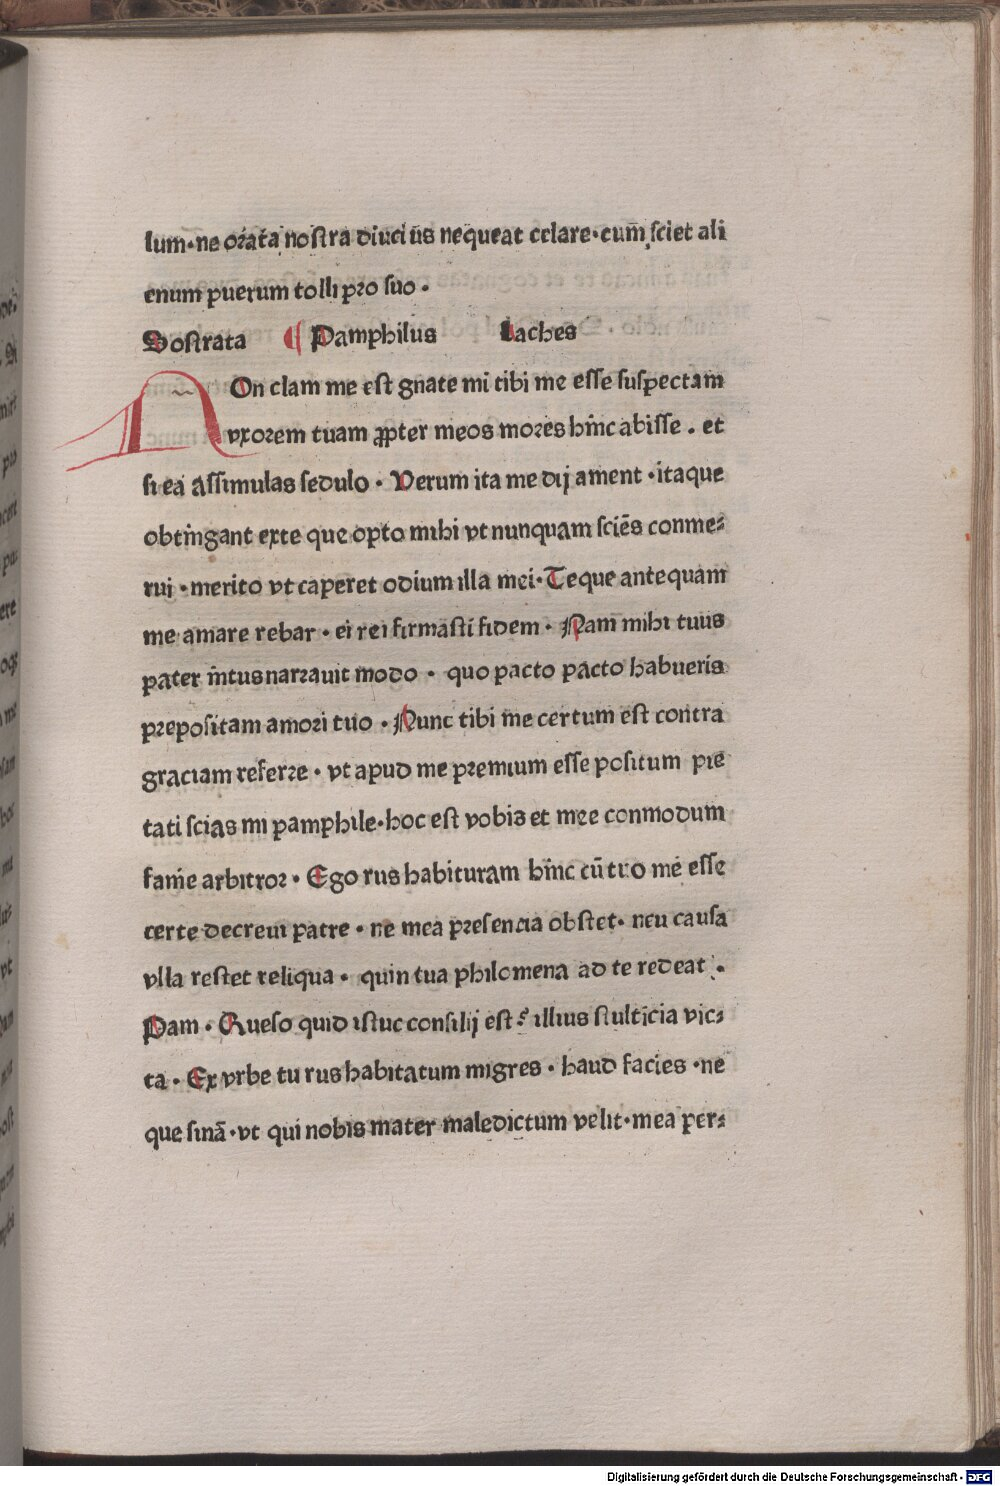 lum·ne orata nostra diucius nequeat celare·cum̄ sciet ali
enum puerum tolli pro suo·
Sostrata ¶ Pamphilus Laches
NOn clam me est gnate mi tibi me esse suspectam
vxorem tuam ꝓpter meos mores hinc abisse . et
si ea assimulas sedulo · Verum ita me dij ament ·itaque
obtingant exte que opto mihi vt nunquam sciēs conme⸗
rui ·merito vt caperet odium illa mei·Teque antequam
me amare rebar · ei rei firmasti fidem · Nam mihi tuus
pater īntus narrauit modo · quo pacto pacto habueris
prepositam amori tuo · Nunc tibi me certum est contra
graciam referre · vt apud me premium esse positum pie
tati scias mi pamphile·hoc est vobis et mee conmodum
fame arbitror · Ego rus habituram hinc cū tuo me esse
certe decreui patre · ne mea presencia obstet· neu causa
vlla restet reliqua · quin tua philomena ad te redeat .·
Pam · Queso quid istuc consilij est? illius stulticia vic⸗
ta · Ex vrbe tu rus habitatum migres · haud facies ·ne
que sinā ·vt qui nobis mater maledictum velit·mea per⸗
Digitalisierung gefördert durch die Deutsche Forschungsgemeinschaft - DFG